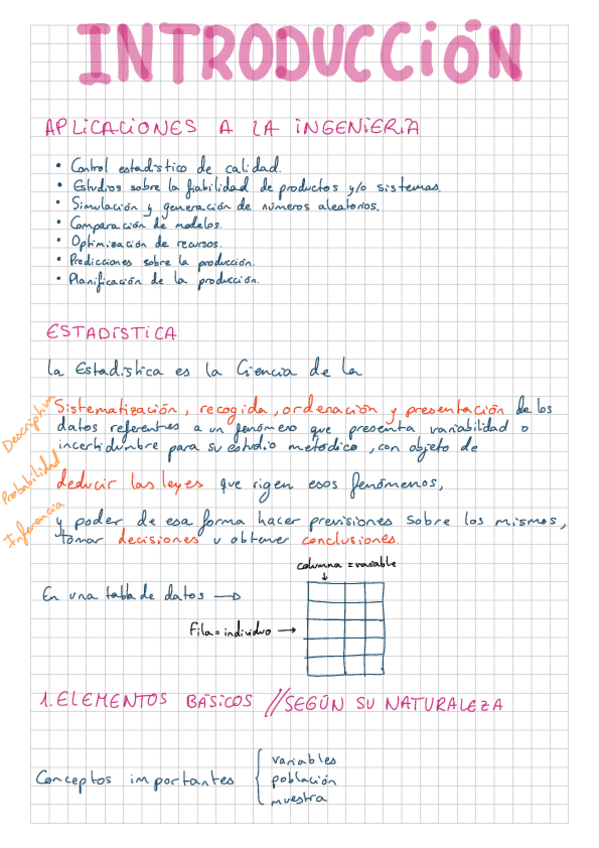 INTRODUCCIÓN
APLICACIONES A LA INGENIERÍA
• Control estadístico de calidad.
• Estudios sobre la fiabilidad de productos y/o sistemas.
• Simulación y generación de números aleatorios.
• Comparación de modelos.
• Optimización de recursos.
• Predicciones sobre la producción.
• Planificación de la producción.
ESTADÍSTICA
La Estadística es la Ciencia de la
Descriptiva
Sistematización, recogida, ordenación y presentación de los
datos referentes a un fenómeno que presenta variabilidad o
incertidumbre para su estudio metódico, con objeto de
Probabilidad
deducir las leyes que rigen esos fenómenos,
Inferencia
y poder de esa forma hacer previsiones sobre los mismos,
tomar decisiones u obtener conclusiones.
columna = variable
En una tabla de datos →
Fila = individuo →
1. ELEMENTOS BÁSICOS // SEGÚN SU NATURALEZA
Conceptos importantes
variables
población
muestra